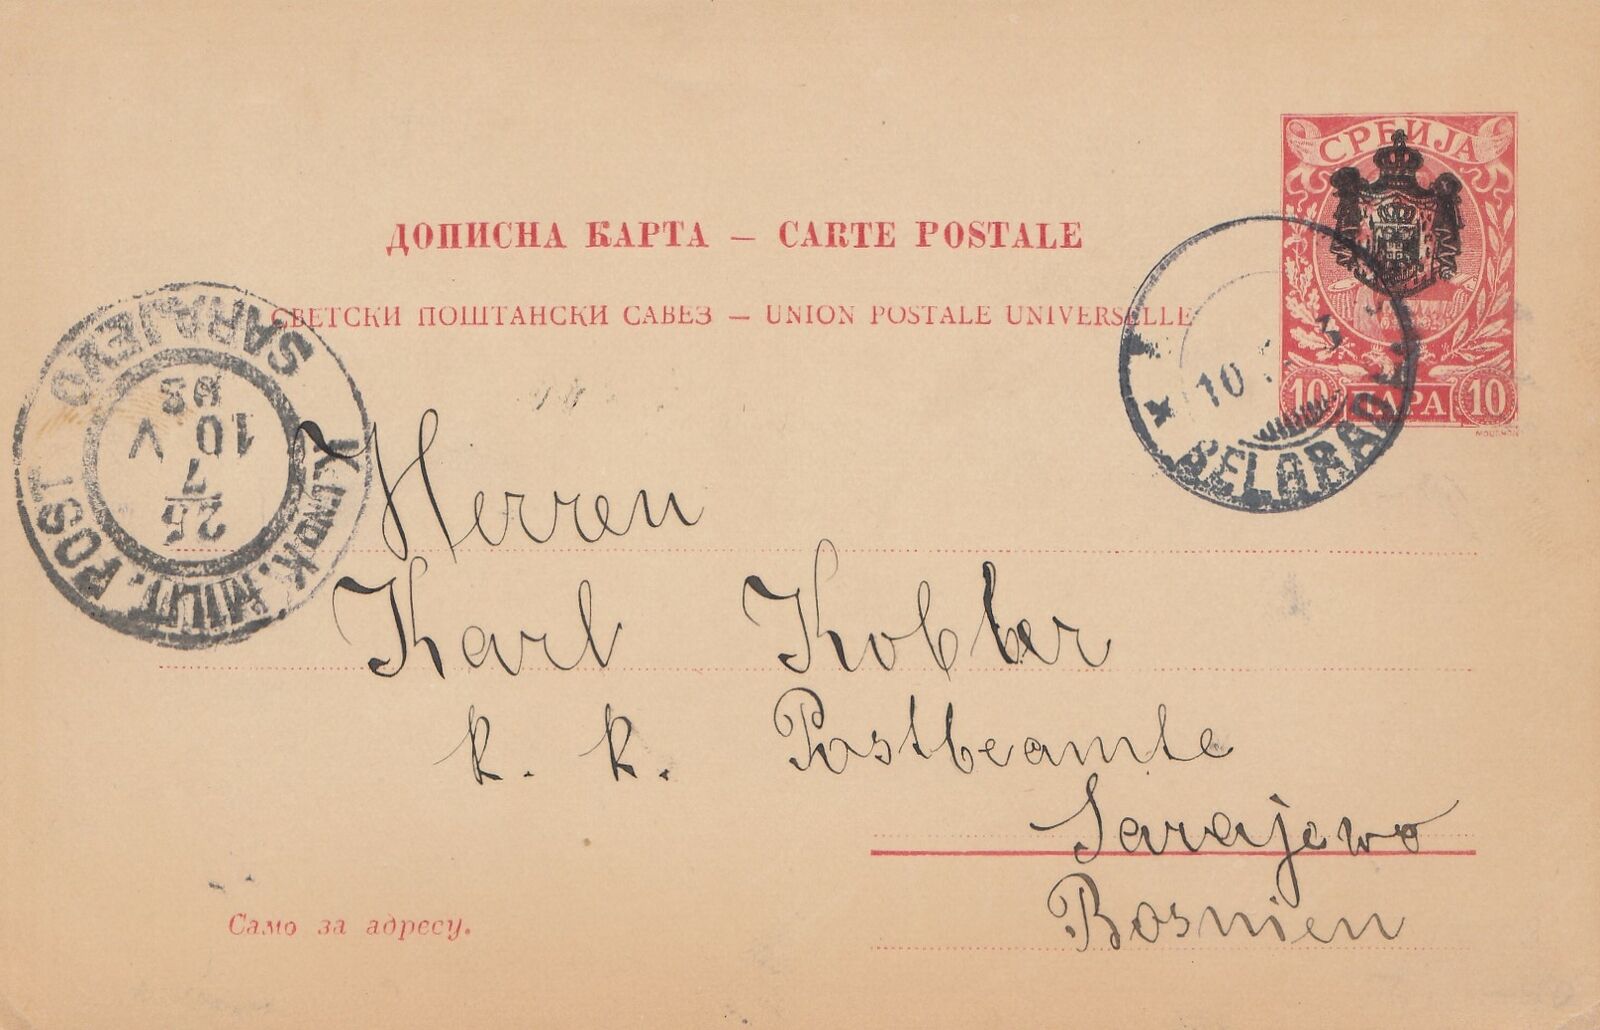 СРБИЈА
10 ПАРА 10
MOUCHON
ДОПИСНА КАРТА — CARTE POSTALE
СВЕТСКИ ПОШТАНСКИ САВЕЗ — UNION POSTALE UNIVERSELLE
10 3
BELGRADE
K. UND K. MILIT. POST
SARAJEVO
25
7
10 V
03
Herren
Karl Kobler
k. k. Postbeamte
Sarajewo
Bosnien
Само за адресу.